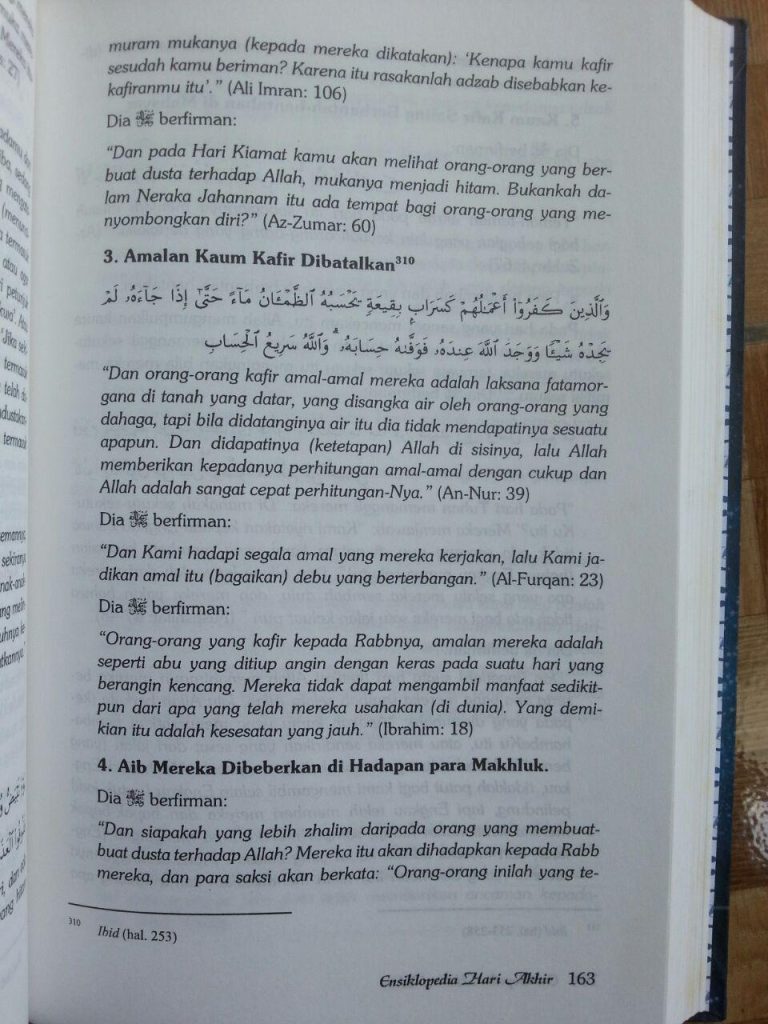 muram mukanya (kepada mereka dikatakan): ‘Kenapa kamu kafir
sesudah kamu beriman? Karena itu rasakanlah adzab disebabkan ke-
kafiranmu itu’.” (Ali Imran: 106)
Dia ﷻ berfirman:
“Dan pada Hari Kiamat kamu akan melihat orang-orang yang ber-
buat dusta terhadap Allah, mukanya menjadi hitam. Bukankah da-
lam Neraka Jahannam itu ada tempat bagi orang-orang yang me-
nyombongkan diri?” (Az-Zumar: 60)
3. Amalan Kaum Kafir Dibatalkan310
وَالَّذِينَ كَفَرُوٓا۟ أَعْمَـٰلُهُمْ كَسَرَابٍۭ بِقِيعَةٍ يَحْسَبُهُ الظَّمْـَٔانُ مَآءً حَتَّىٰٓ إِذَا جَآءَهُۥ لَمْ
يَجِدْهُ شَيْـًٔا وَوَجَدَ اللَّهَ عِندَهُۥ فَوَفَّىٰهُ حِسَابَهُۥ ۗ وَاللَّهُ سَرِيعُ الْحِسَابِ
“Dan orang-orang kafir amal-amal mereka adalah laksana fatamor-
gana di tanah yang datar, yang disangka air oleh orang-orang yang
dahaga, tapi bila didatanginya air itu dia tidak mendapatinya sesuatu
apapun. Dan didapatinya (ketetapan) Allah di sisinya, lalu Allah
memberikan kepadanya perhitungan amal-amal dengan cukup dan
Allah adalah sangat cepat perhitungan-Nya.” (An-Nur: 39)
Dia ﷻ berfirman:
“Dan Kami hadapi segala amal yang mereka kerjakan, lalu Kami ja-
dikan amal itu (bagaikan) debu yang berterbangan.” (Al-Furqan: 23)
Dia ﷻ berfirman:
“Orang-orang yang kafir kepada Rabbnya, amalan mereka adalah
seperti abu yang ditiup angin dengan keras pada suatu hari yang
berangin kencang. Mereka tidak dapat mengambil manfaat sedikit-
pun dari apa yang telah mereka usahakan (di dunia). Yang demi-
kian itu adalah kesesatan yang jauh.” (Ibrahim: 18)
4. Aib Mereka Dibeberkan di Hadapan para Makhluk.
Dia ﷻ berfirman:
“Dan siapakah yang lebih zhalim daripada orang yang membuat-
buat dusta terhadap Allah? Mereka itu akan dihadapkan kepada Rabb
mereka, dan para saksi akan berkata: “Orang-orang inilah yang te-
310 Ibid (hal. 253)
Ensiklopedia Hari Akhir 163